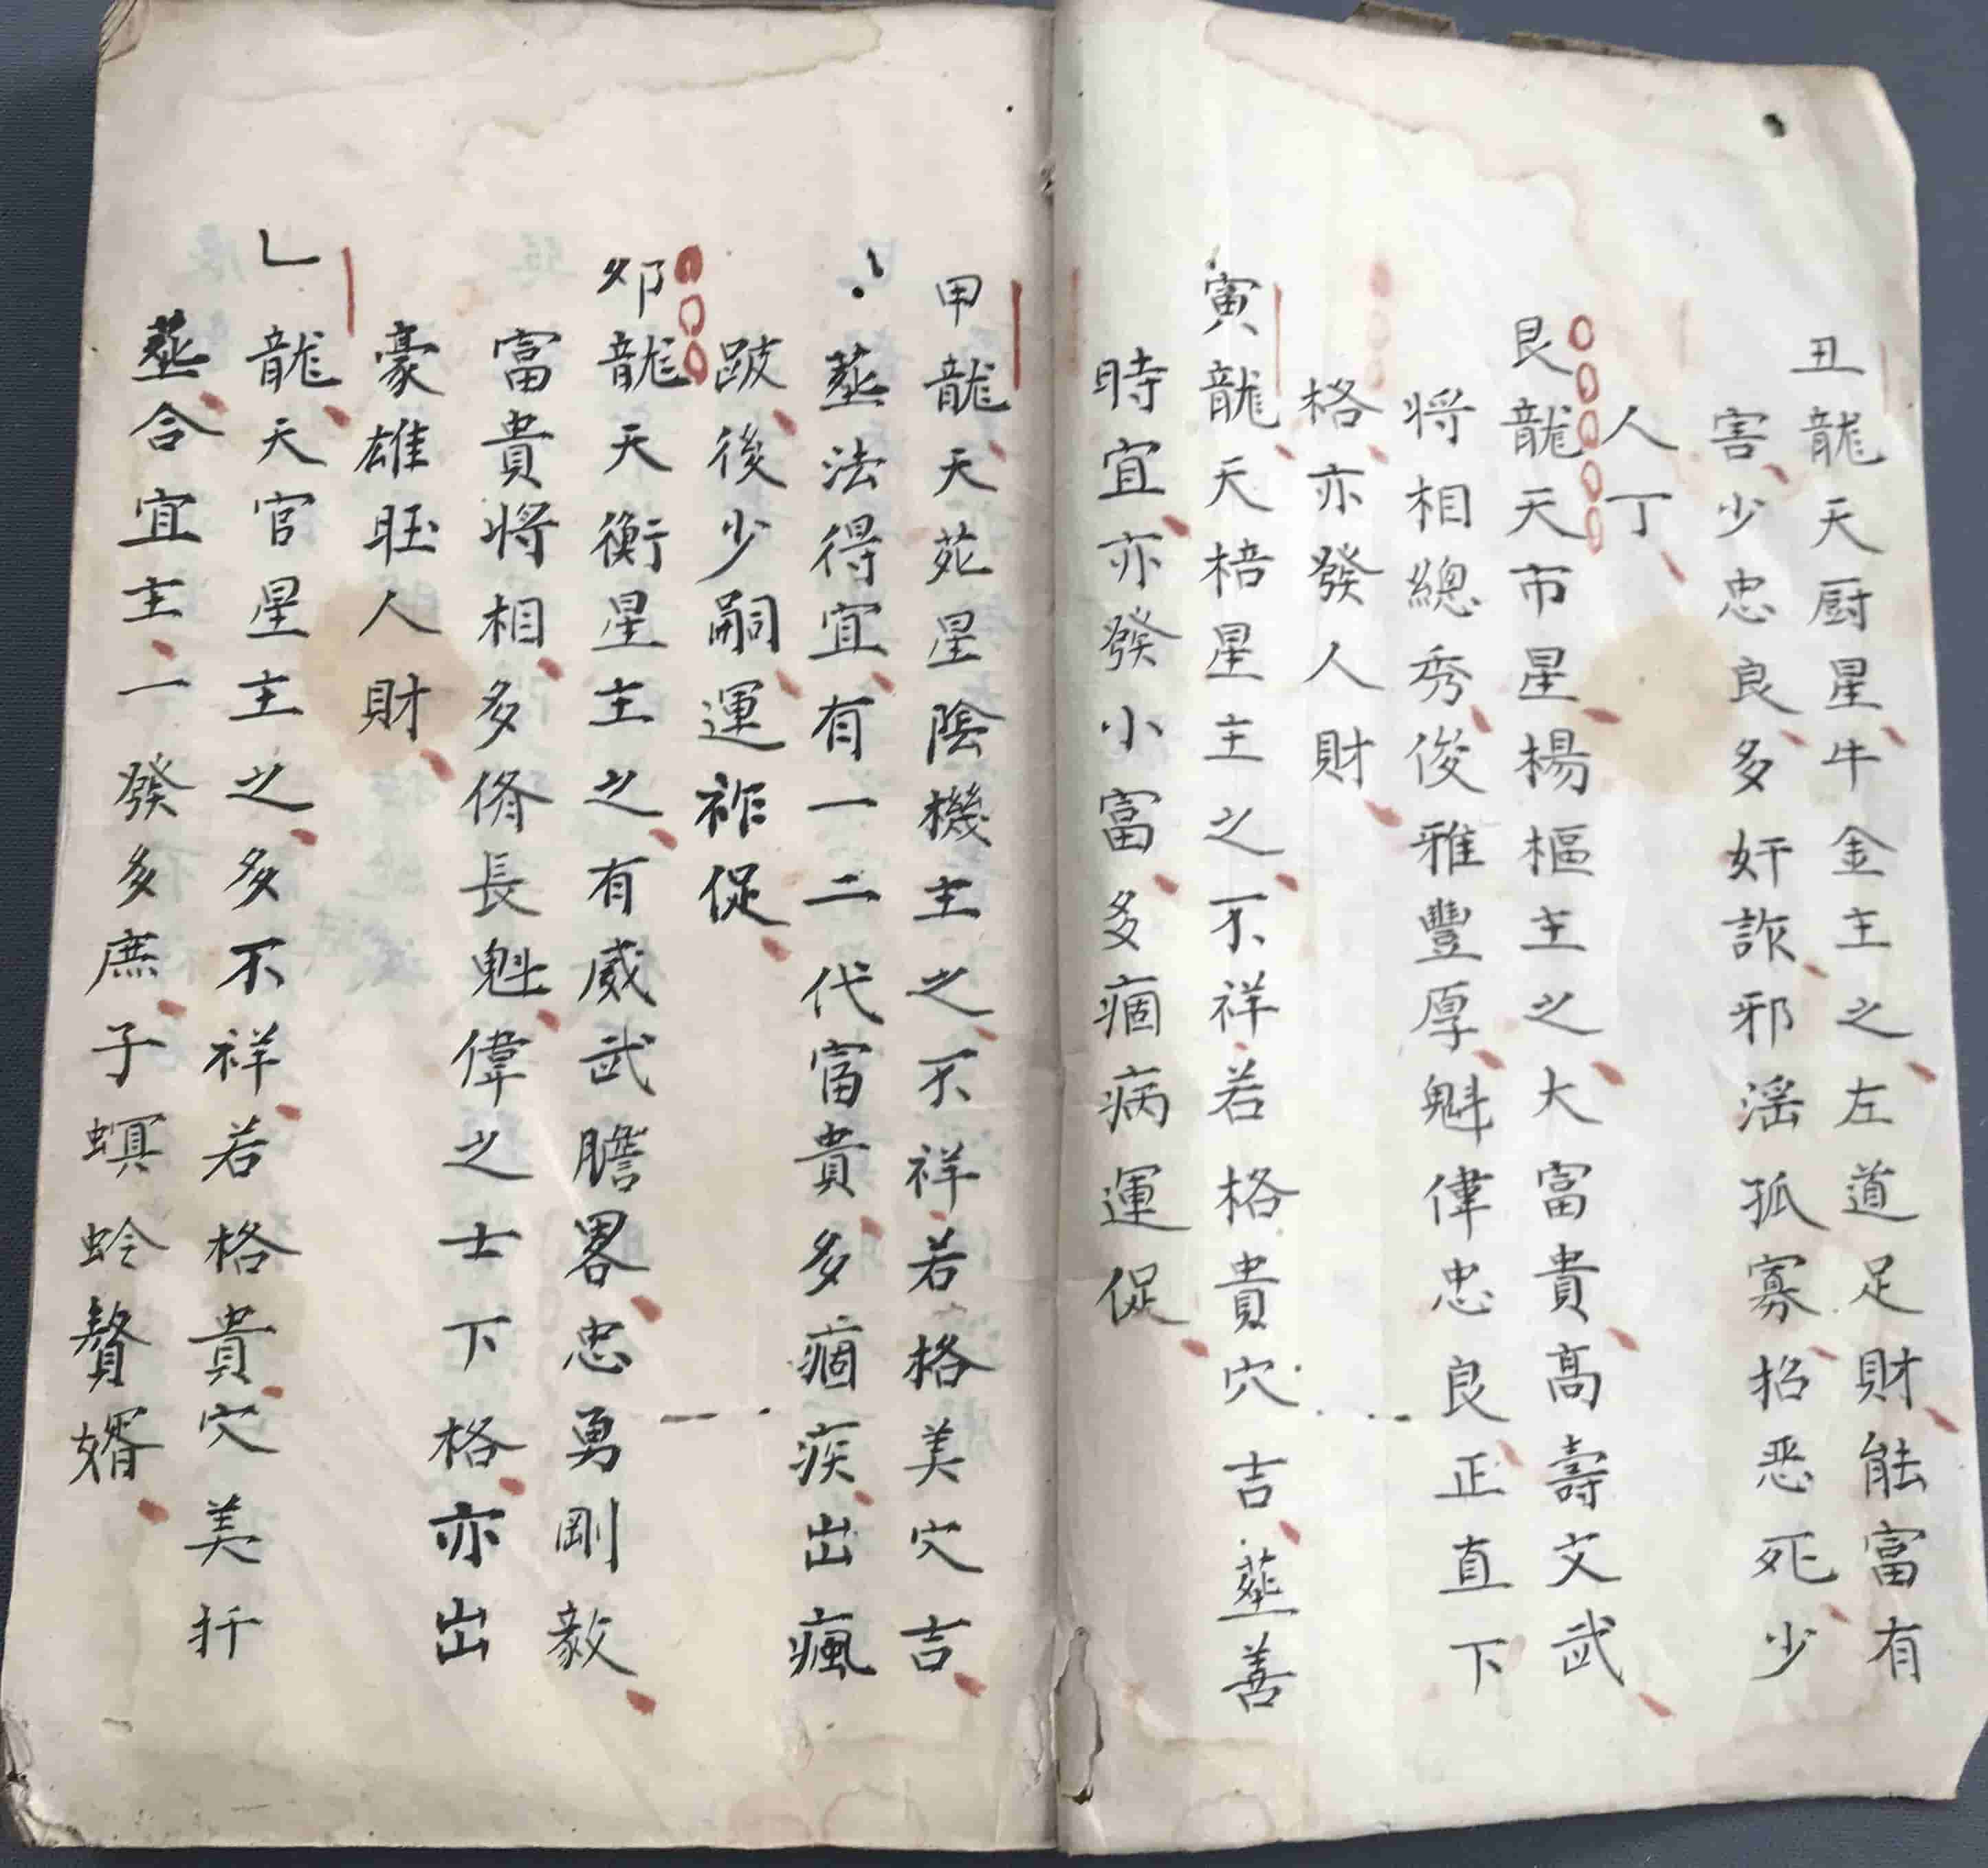 丑龍天厨星牛金主之左道足財能富有
害少忠良多奸詐邪淫孤寡招恶死少
人丁
艮龍天市星楊樞主之大富貴高壽文武
将相總秀俊雅豐厚魁偉忠良正直下
格亦發人財
寅龍天棓星主之不祥若格貴穴吉葬善
時宜亦發小富多痼病運促
甲龍天苑星陰機主之不祥若格美穴吉
葬法得宜有一二代富貴多痼疾出瘋
跛後少嗣運祚促
卯龍天衡星主之有威武膽畧忠勇剛毅
富貴将相多脩長魁偉之士下格亦出
豪雄旺人財
乙龍天官星主之多不祥若格貴穴美扦
葬合宜主一發多庶子螟蛉贅婿